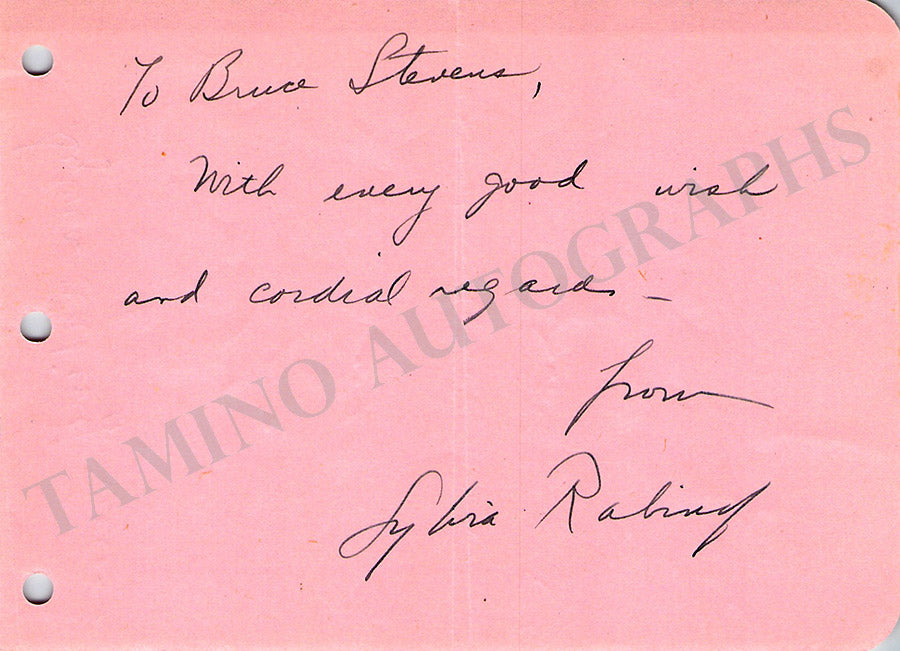 To Bruce Stevens,
With every good wish
and cordial regards –
from
Sylvia Rabinof
TAMINO AUTOGRAPHS